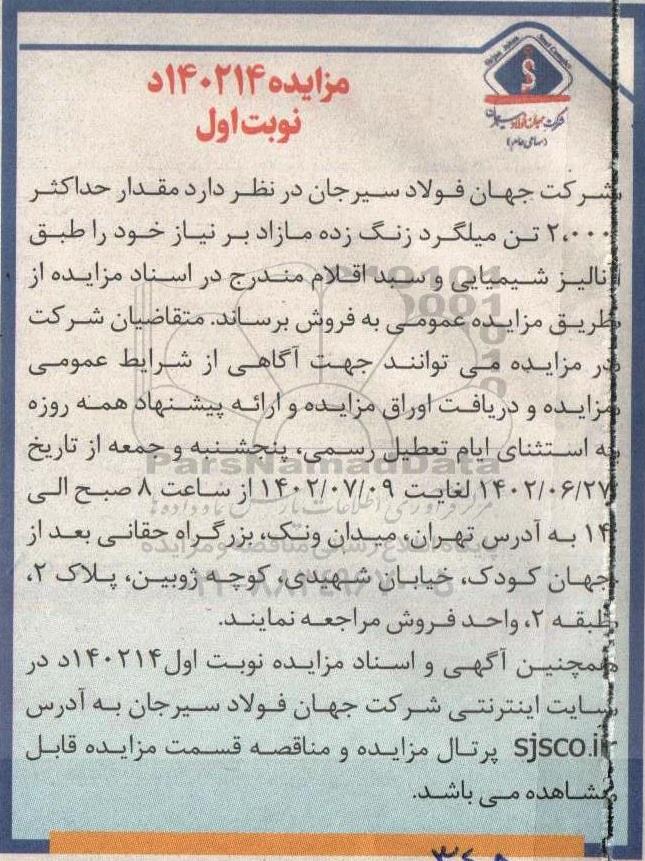 Sirjan Jahan Steel Complex
شرکت جهان فولاد سیرجان
(سهامی عام)
مزایده ۱۴۰۲۱۴د
نوبت اول
شرکت جهان فولاد سیرجان در نظر دارد مقدار حداکثر
۲،۰۰۰ تن میلگرد زنگ زده مازاد بر نیاز خود را طبق
آنالیز شیمیایی و سبد اقلام مندرج در اسناد مزایده از
طریق مزایده عمومی به فروش برساند. متقاضیان شرکت
در مزایده می توانند جهت آگاهی از شرایط عمومی
مزایده و دریافت اوراق مزایده و ارائه پیشنهاد همه روزه
به استثنای ایام تعطیل رسمی، پنجشنبه و جمعه از تاریخ
۱۴۰۲/۰۶/۲۷ لغایت ۱۴۰۲/۰۷/۰۹ از ساعت ۸ صبح الی
۱۴ به آدرس تهران، میدان ونک، بزرگراه حقانی بعد از
جهان کودک، خیابان شهیدی، کوچه ژوبین، پلاک ۲،
طبقه ۲، واحد فروش مراجعه نمایند.
همچنین آگهی و اسناد مزایده نوبت اول ۱۴۰۲۱۴د در
سایت اینترنتی شرکت جهان فولاد سیرجان به آدرس
sjsco.ir پرتال مزایده و مناقصه قسمت مزایده قابل
مشاهده می باشد.
ParsNamadData